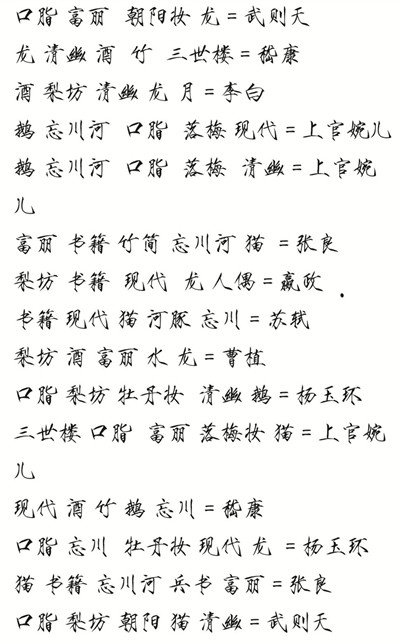 口脂 富丽 朝阳妆 龙=武则天
龙 清幽 酒 竹 三世楼=嵇康
酒 梨坊 清幽 龙 月=李白
鹅 忘川河 口脂 落梅 现代=上官婉儿
鹅 忘川河 口脂 落梅 清幽=上官婉
儿
富丽 书籍 竹简 忘川河 猫 =张良
梨坊 书籍 现代 龙 人偶=嬴政
书籍 现代 猫 河豚 忘川=苏轼
梨坊 酒 富丽 水 龙=曹植
口脂 梨坊 牡丹妆 清幽 鹅=杨玉环
三世楼 口脂 富丽 落梅妆 猫=上官婉
儿
现代 酒 竹 鹅 忘川=嵇康
口脂 忘川 牡丹妆 现代 龙 =杨玉环
猫 书籍 忘川河 兵书 富丽=张良
口脂 梨坊 朝阳 猫 清幽=武则天